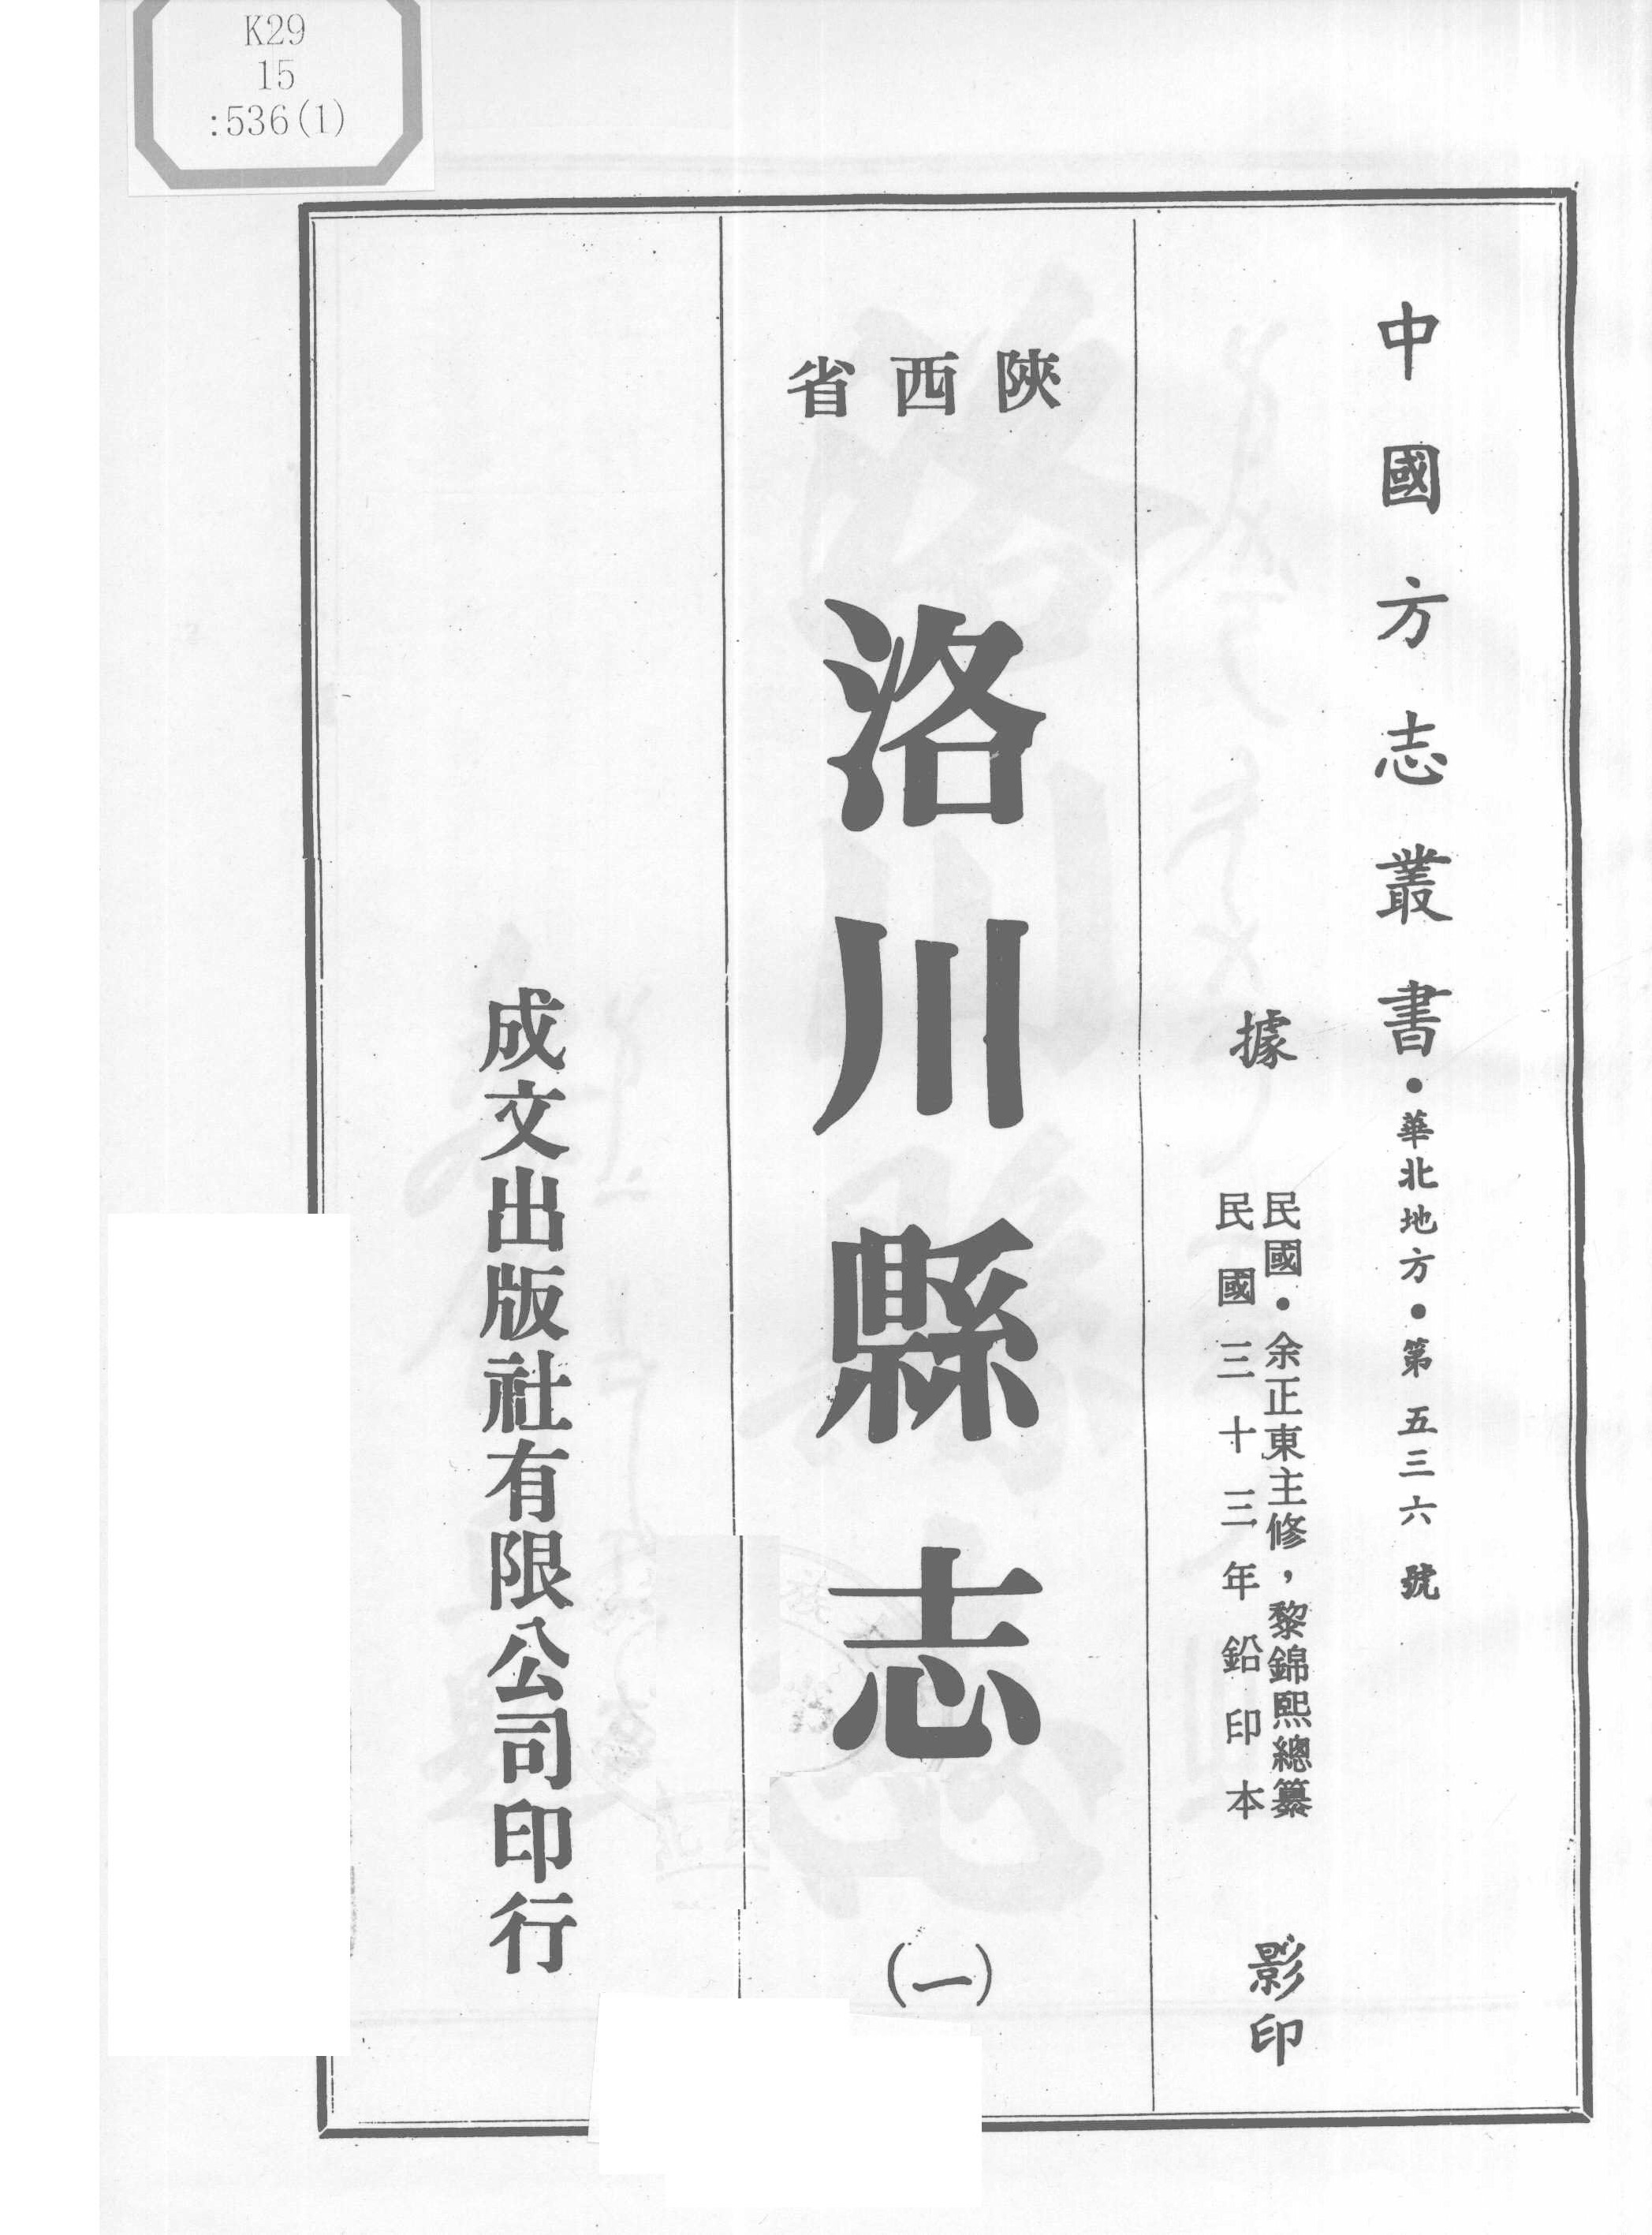 K29
15
:536(1)
中國方志叢書・華北地方・第五三六號
據
民國・余正東主修，黎錦熙總纂
民國三十三年鉛印本
影印
陝西省
洛川縣志
(一)
成文出版社有限公司印行